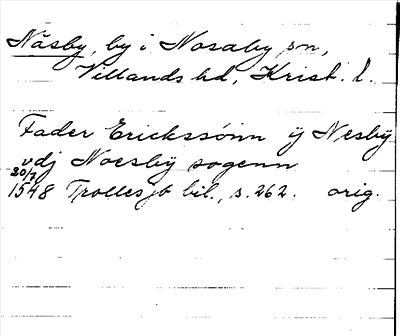 Näsby, by i Nosaby sn,
Villands hd, Krist. l.
Fader Erickssönn ÿ Nesbÿ
vdj Noesbÿ sogenn
20/7
1548 Trollesjb bil., s. 262. orig.